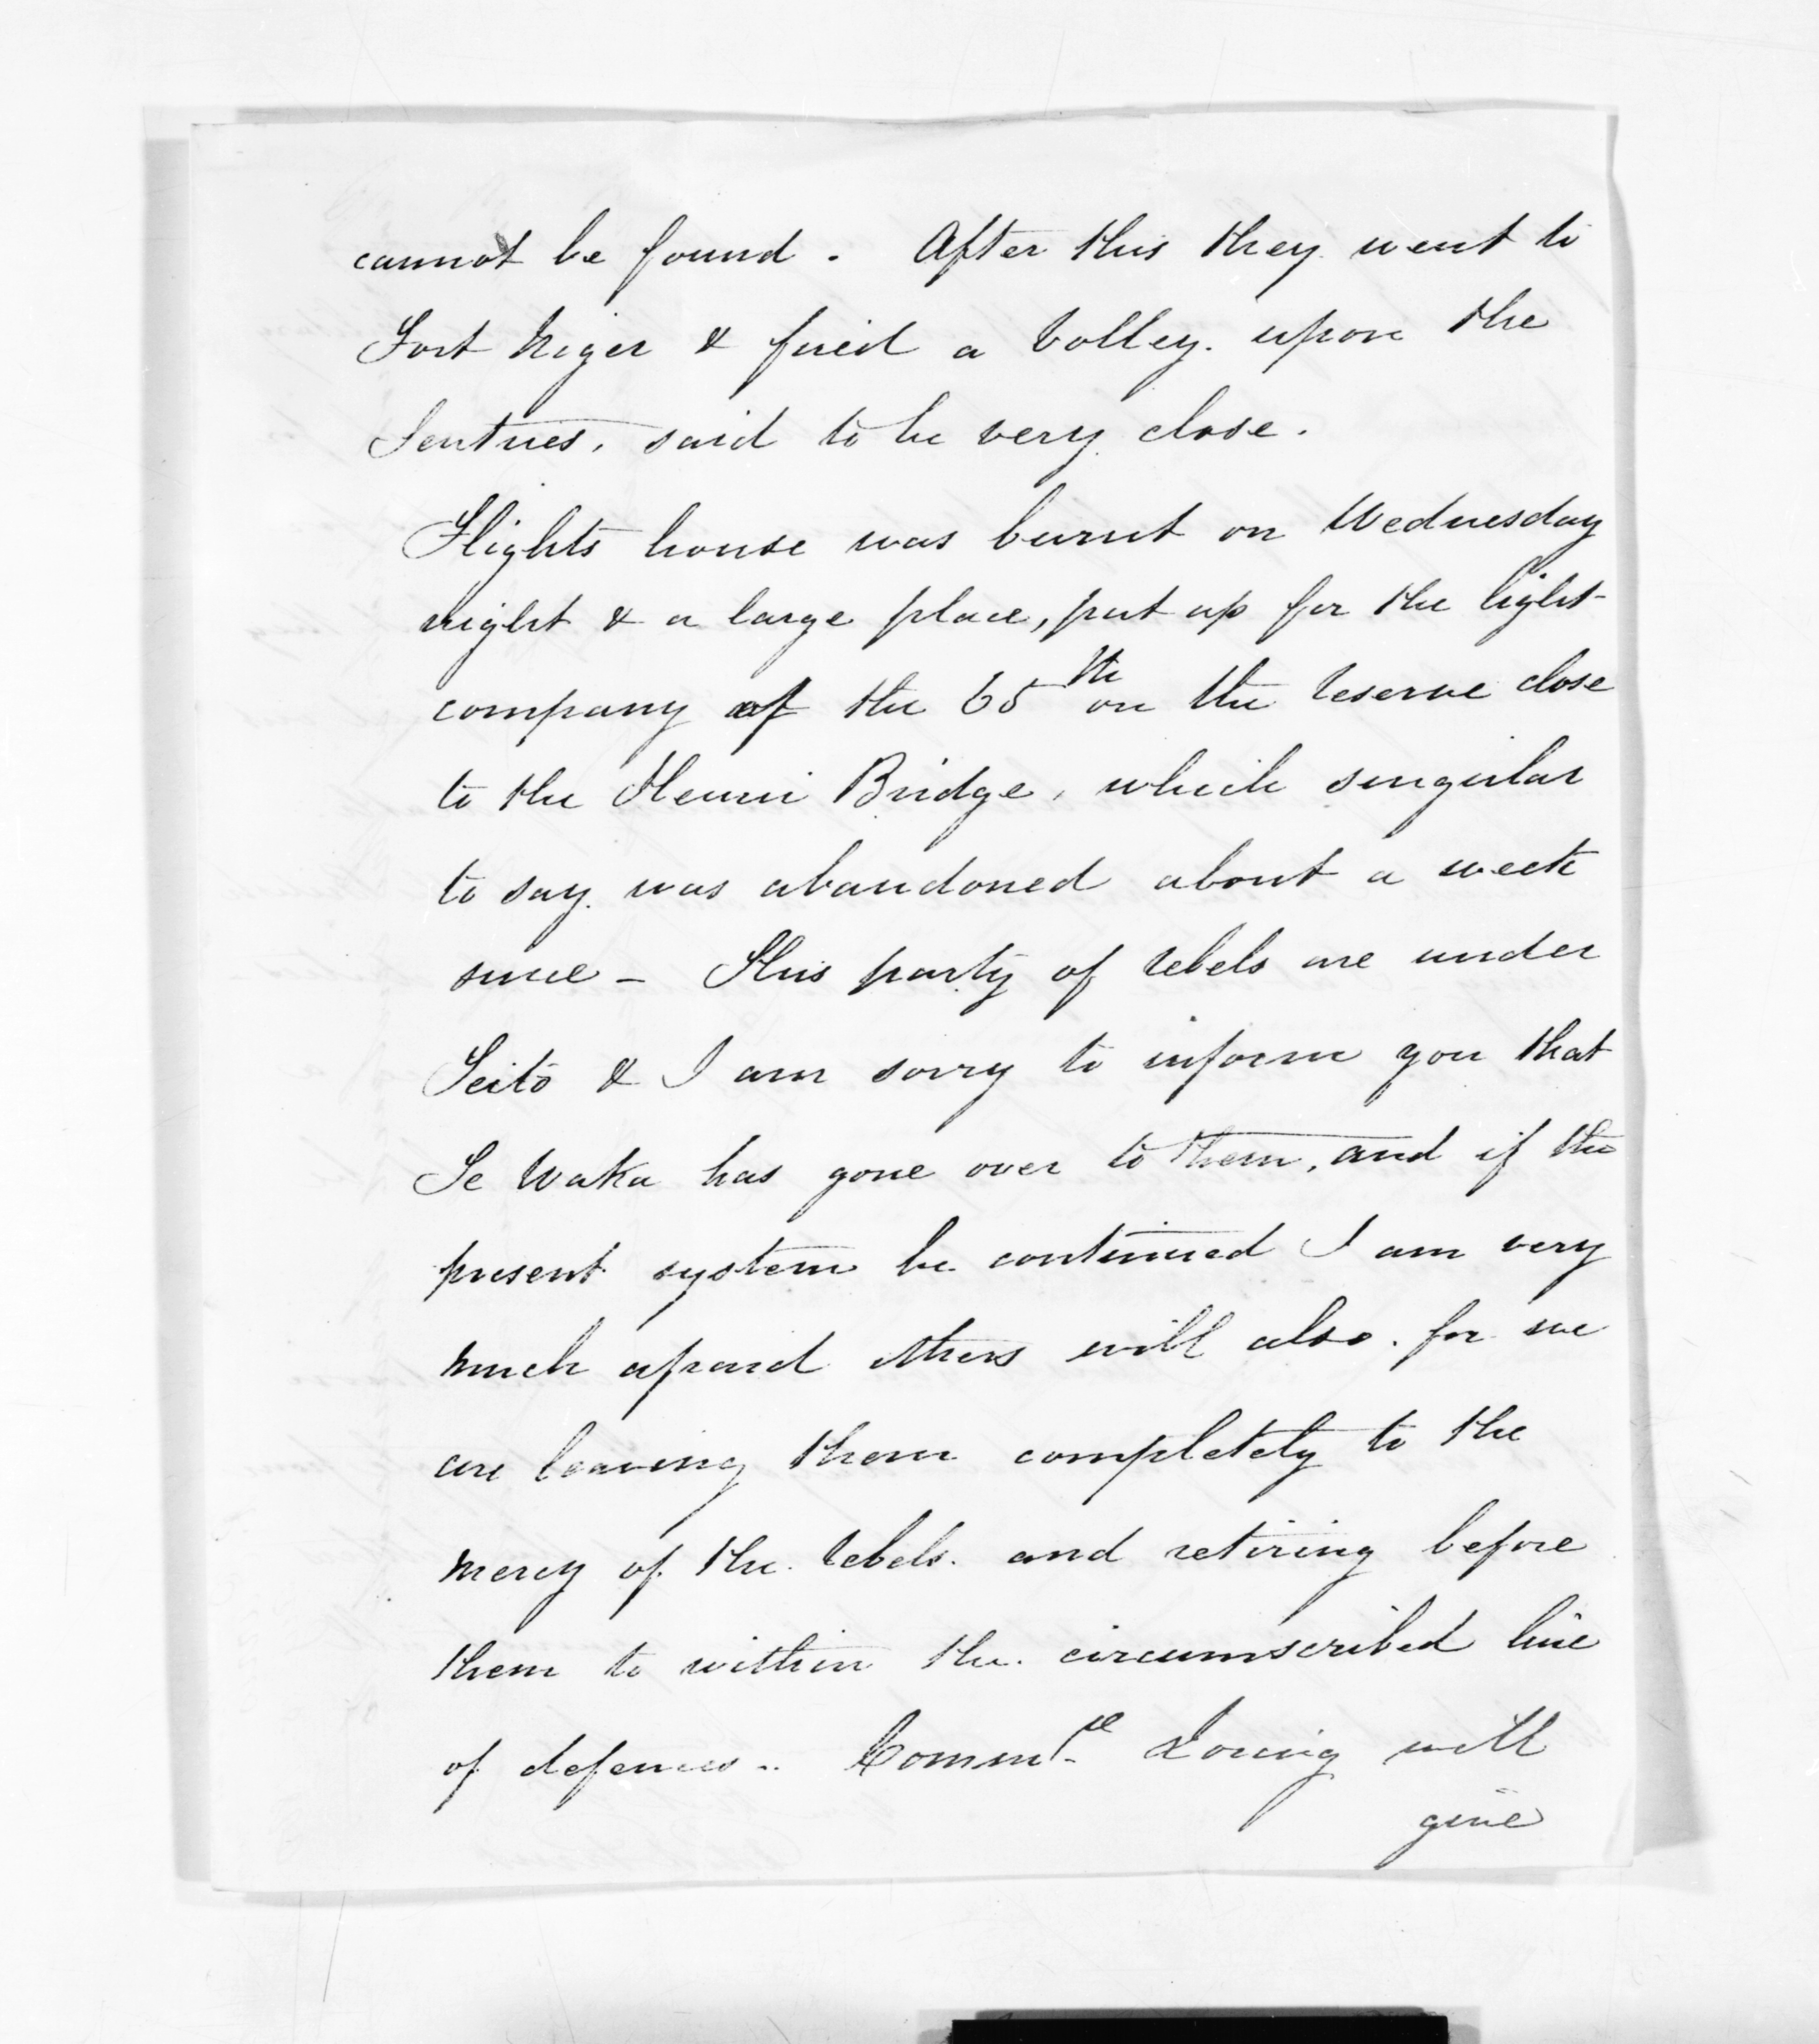 cannot be found. After this they went to
Fort Niger & fired a Volley upon the
Sentries, said to be very close.
Flights house was burnt on Wednesday
night & a large place, put up for the light
company of the 65th on the reserve close
to the Henui Bridge, which singular
to say was abandoned about a week
since - This party of rebels are under
Teito & I am sorry to inform you that
Te Waka has gone over to them, and if the
present system be continued I am very
much afraid others will also. for we
are leaving them completely to the
mercy of the rebels. and retiring before
them to within the circumscribed line
of defences.. Commre Loring will
give